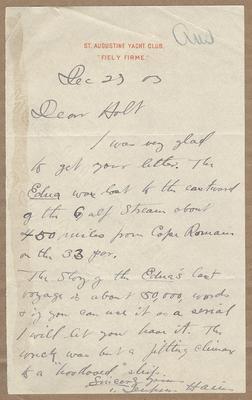 Ans
ST. AUGUSTINE YACHT CLUB.
"FIELY FIRME."
Dec 23 03
Dear Holt
I was very glad
to get your letter. The
Edna was lost to the eastward
of the Gulf Stream about
450 miles from Cape Romain
on the 33 par.
The Story of the Edna's last
voyage is about 50,000 words
& if you can use it as a serial
I will let you have it. The
wreck was but a fitting climax
to a "hoodooed" ship.
Sincerely yours
Hains